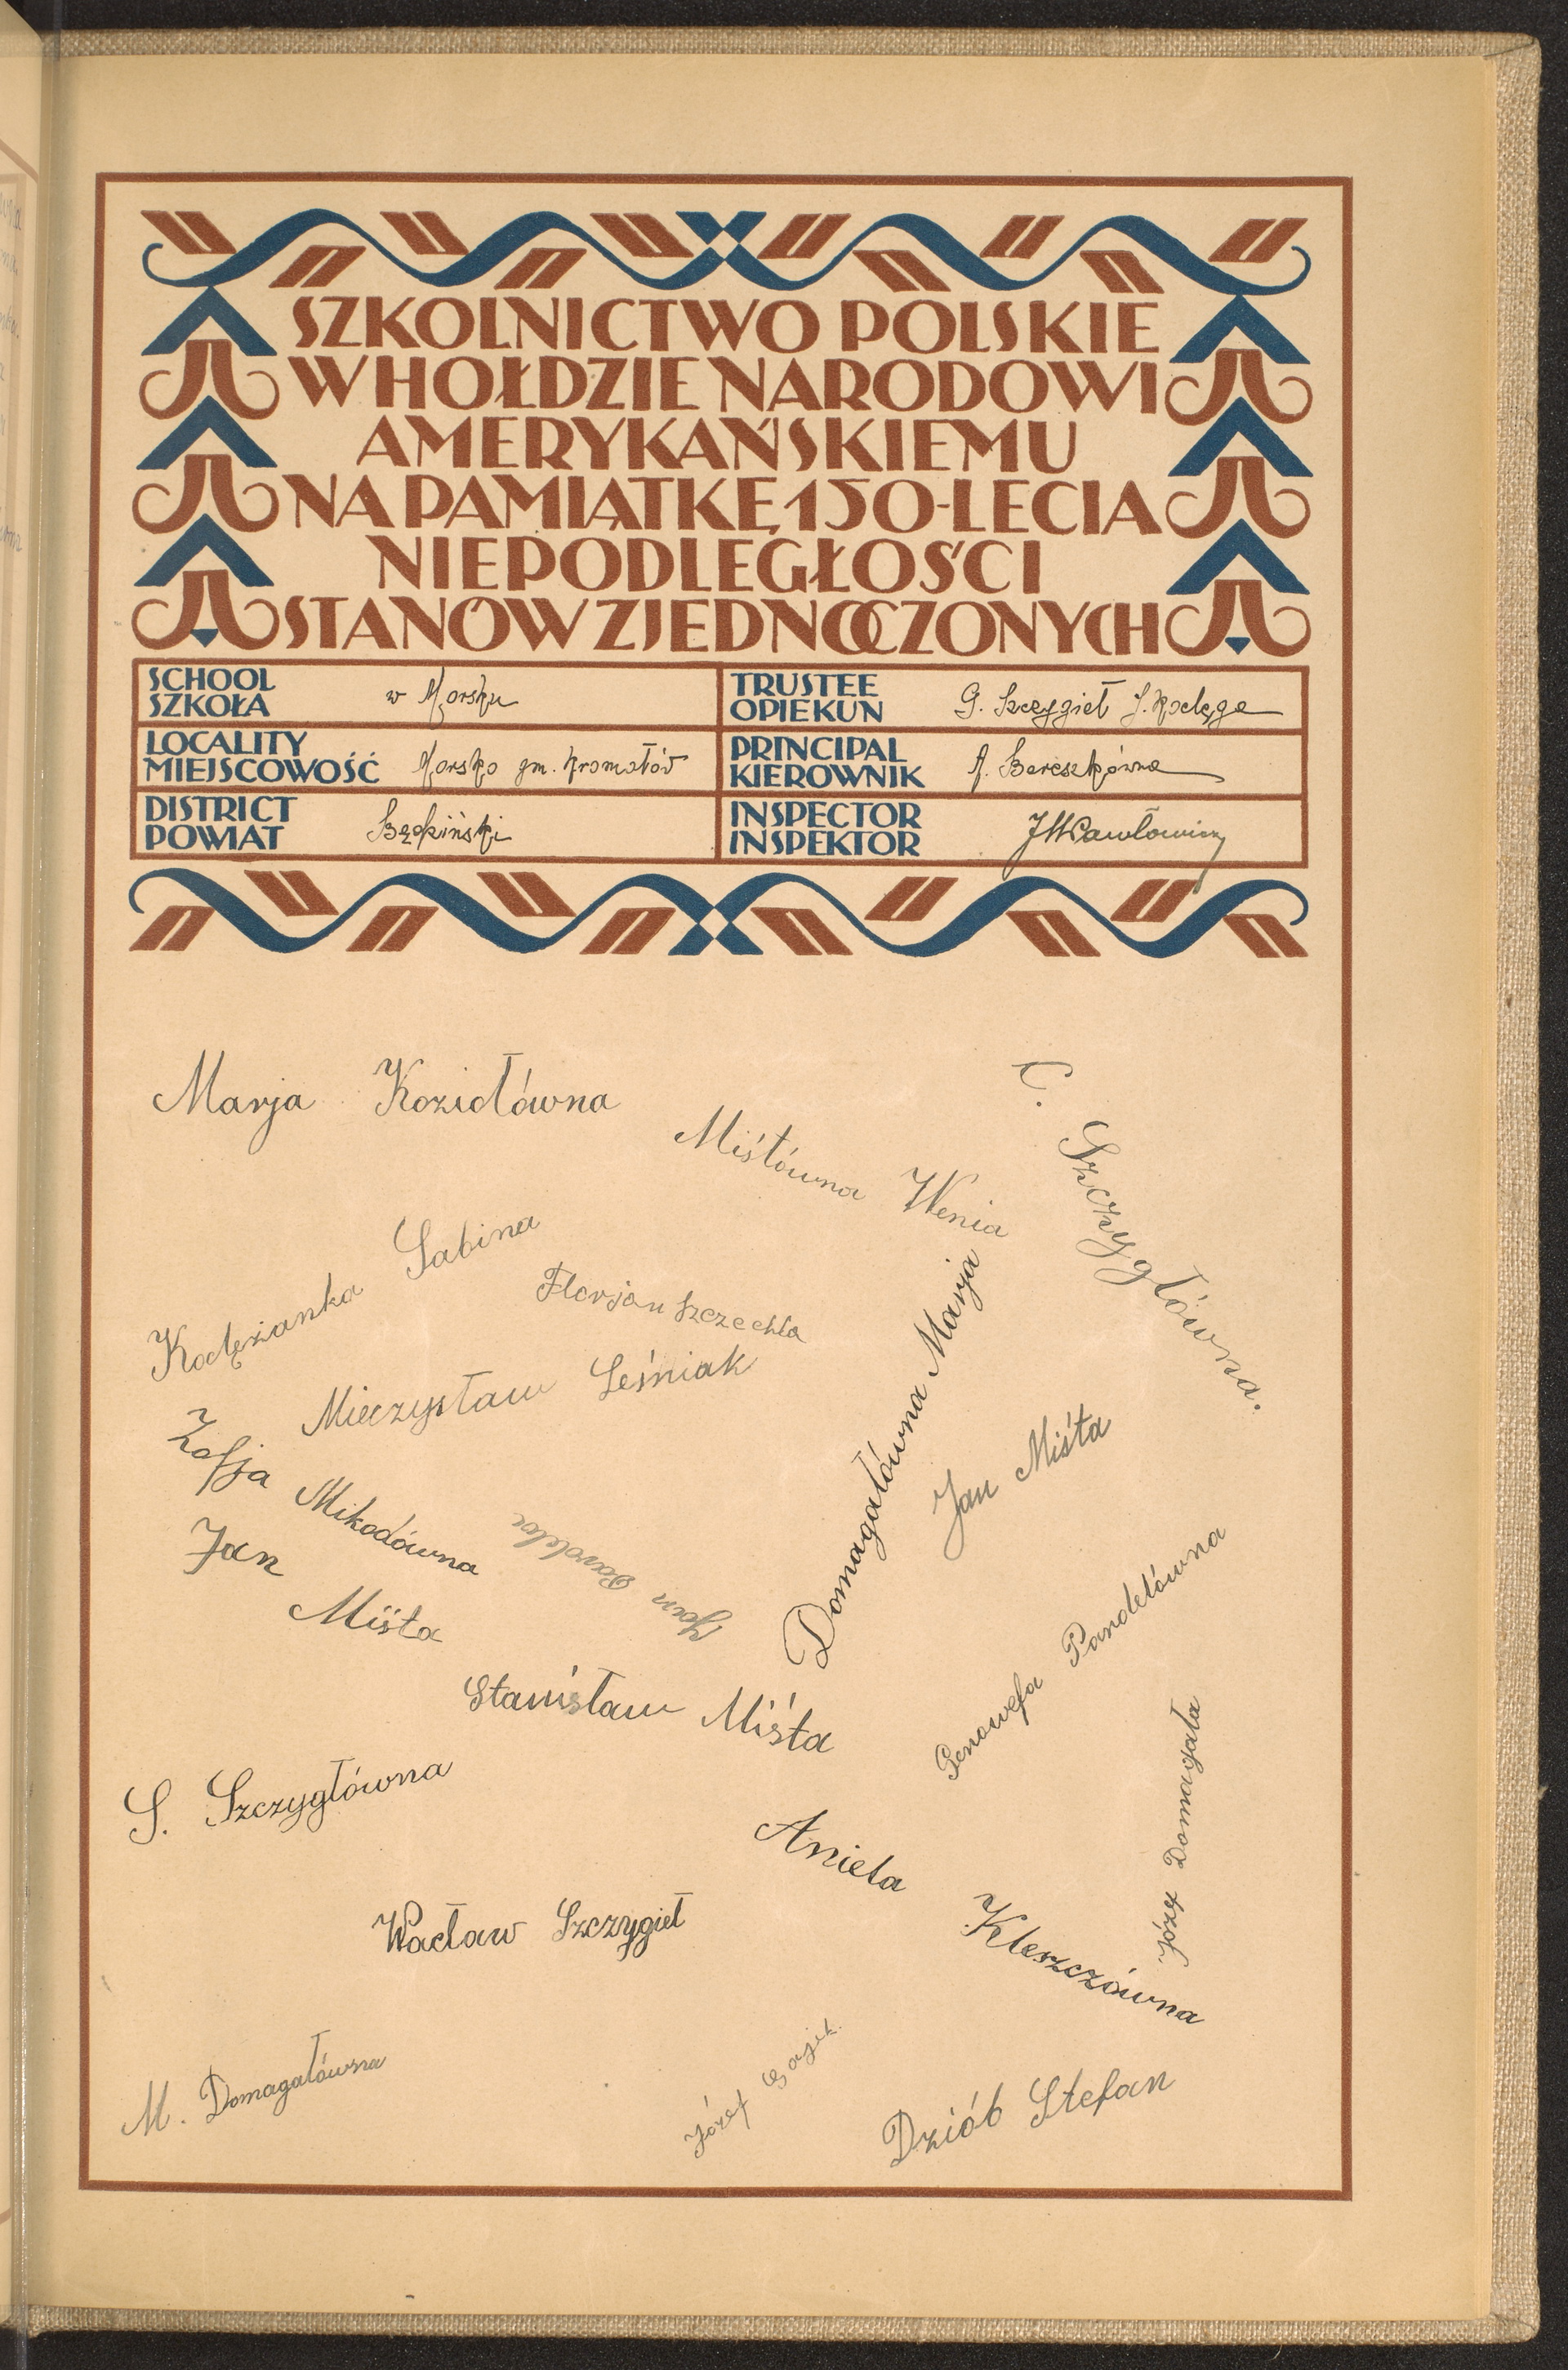 SZKOLNICTWO POLSKIE
W HOŁDZIE NARODOWI
AMERYKAŃSKIEMU
NA PAMIĄTKĘ 150-LECIA
NIEPODLEGŁOŚCI
STANÓW ZJEDNOCZONYCH
SCHOOL
SZKOŁA
w Morsku
TRUSTEE
OPIEKUN
G. Szczygieł J. Kolęga
LOCALITY
MIEJSCOWOŚĆ
Morsko gm. Kromołów
PRINCIPAL
KIEROWNIK
A. Bereszkówna
DISTRICT
POWIAT
Będziński
INSPECTOR
INSPEKTOR
Marja Koziołówna
C. Szczygłówna.
Miśtówna Wenia
Sabina
Florjan Szczechla
Domagałówna Marja
Mieczysław Leśniak
Zofja Mikodówna
Jan Miśta
Jan Miśta
Jan Pardela
Genowefa Pandelówna
Stanisław Miśta
Józef Domagała
S. Szczygłówna
Aniela Kleszczówna
Wacław Szczygieł
M. Domagałówna
Józef Gajek.
Dziób Stefan